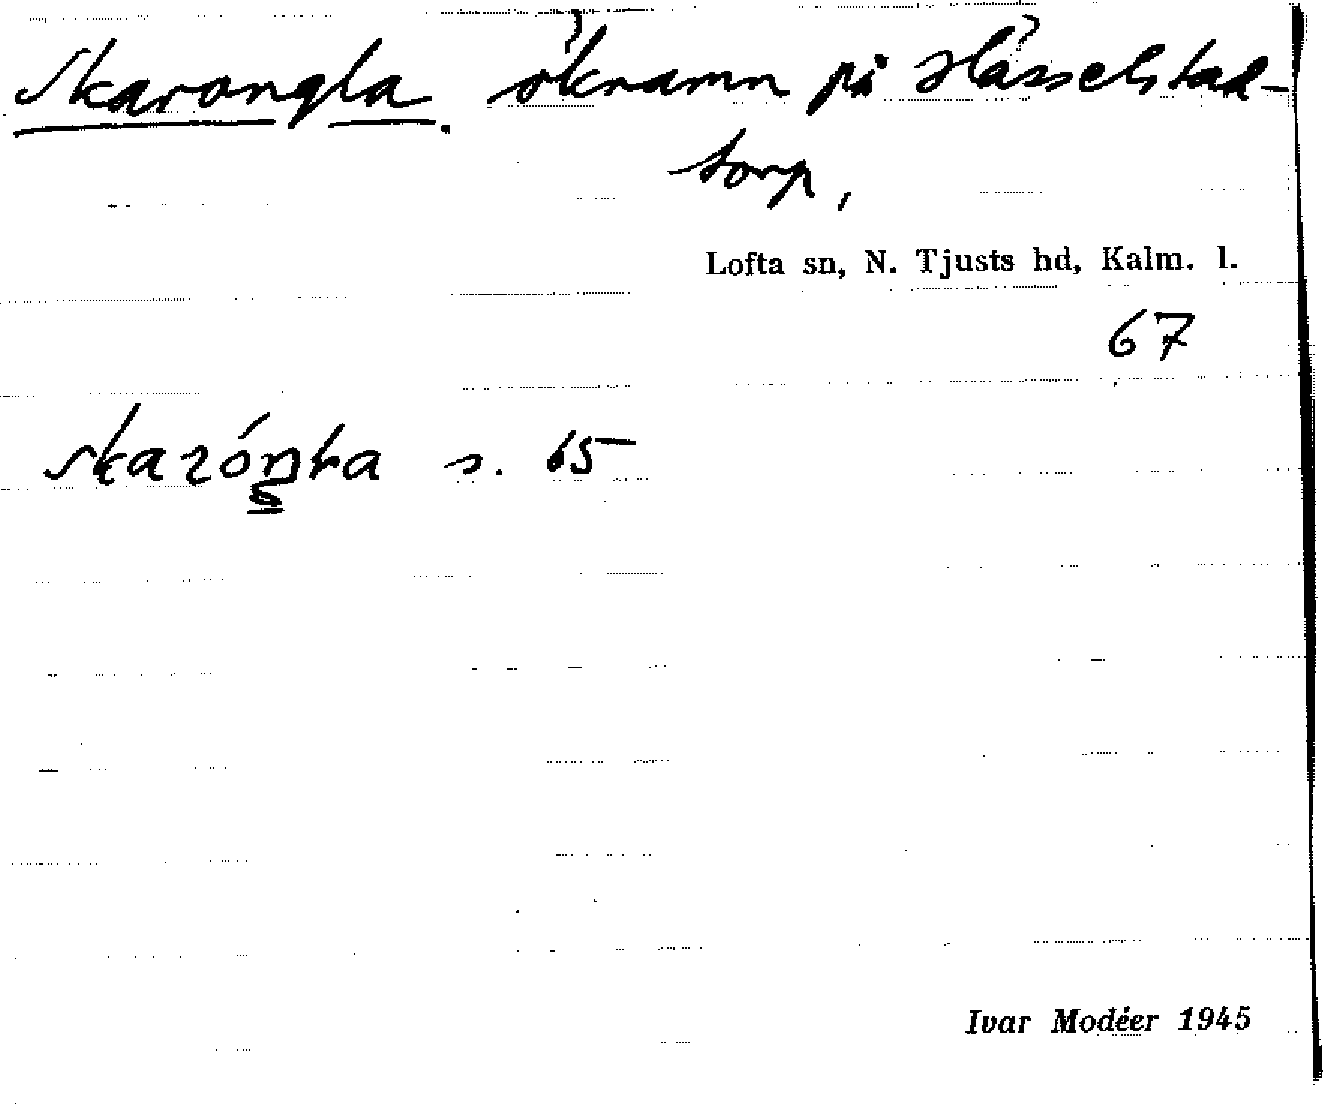 Skarongla, åknamn på Hässelstad-
torp,
Lofta sn, N. Tjusts hd, Kalm. l.
67
s. 65
Ivar Modéer 1945